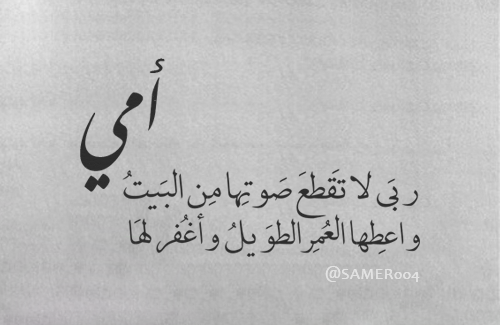 أمي
ربَي لا تقَطعَ صَوتِها مِن البَيتُ
واعطِها العُمِر الطوَيلُ وأغُفر لهَا
@SAMER004